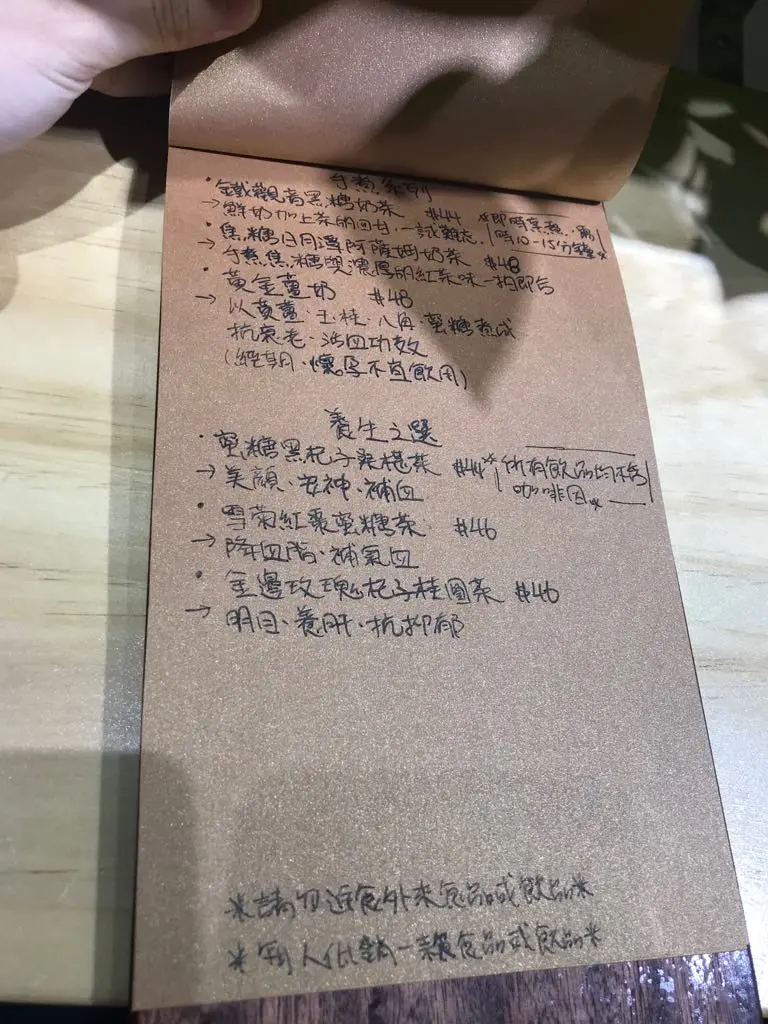 手煮系列
·鐵觀音黑糖奶茶 #44 *即時烹煮,需
→鮮奶加上茶的回甘,一試難忘. 時10-15分鐘*
·焦糖日月潭阿薩姆奶茶 #48
→手煮焦糖與濃厚的紅茶味一拍即合
·黃金薑奶 #48
→以黃薑、玉桂、八角、蜜糖煮成
抗衰老、活血功效
(經期、懷孕不宜飲用)
養生之選
·蜜糖黑杞子桑椹茶 #44 *所有飲品均不含
→美顏、安神、補血 咖啡因*
·雪菊紅棗蜜糖茶 #46
→降血脂、補氣血
·金邊玫瑰杞子桂圓茶 #46
→明目、養肝、抗抑郁
*請勿進食外來食品或飲品*
*每人低銷一款食品或飲品*